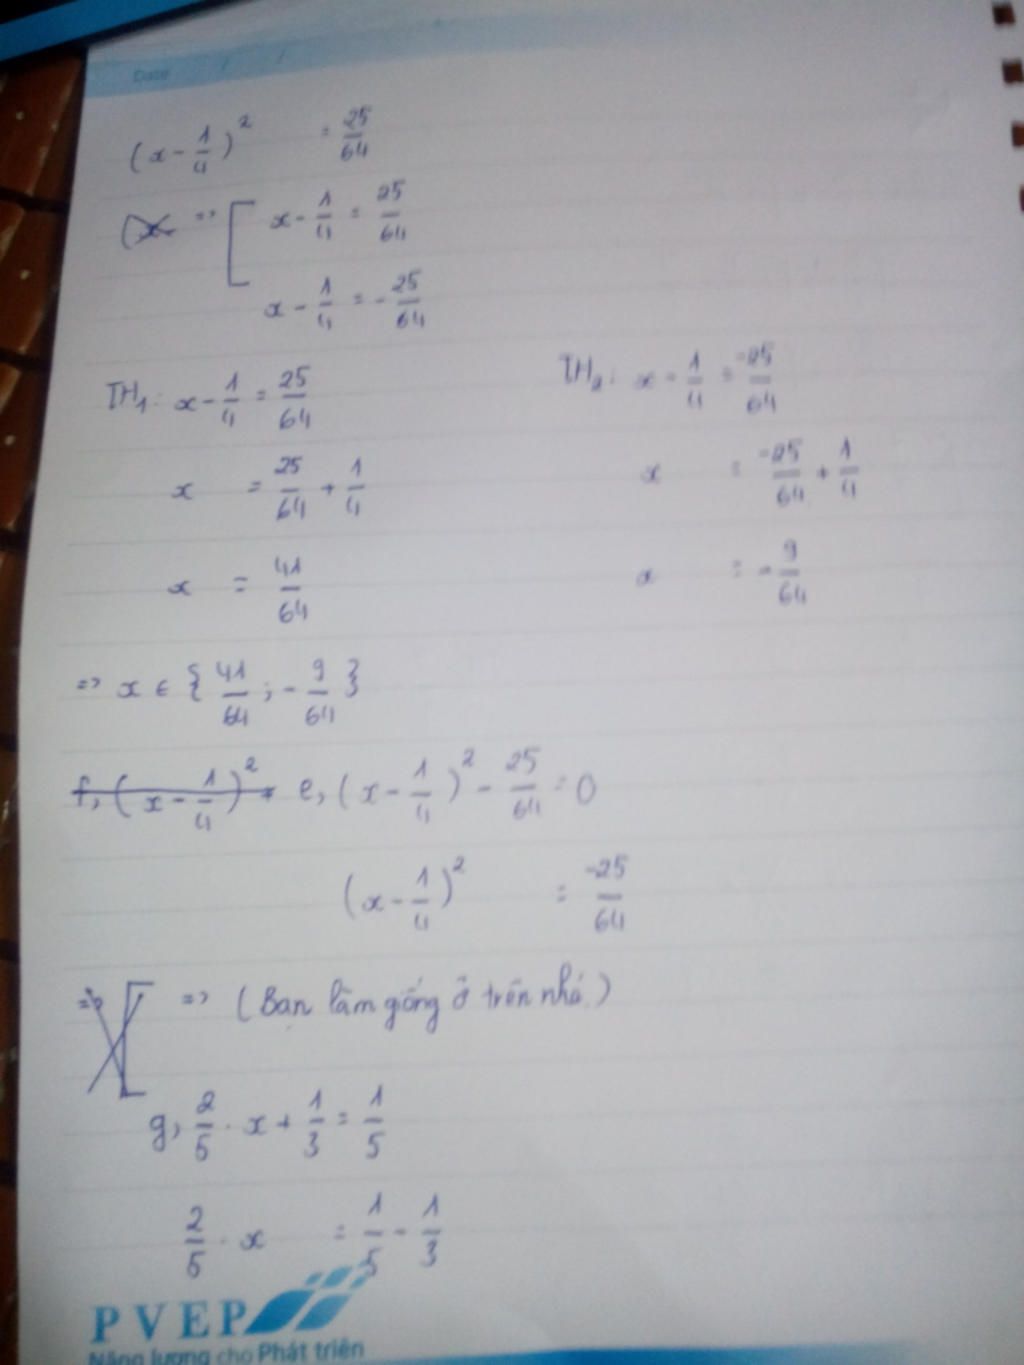 Date / /
(x - 1/4)² = 25/64
(x => [ x - 1/4 = 25/64
x - 1/4 = - 25/64
TH₁: x - 1/4 = 25/64 TH₂: x - 1/4 = -25/64
x = 25/64 + 1/4 x = -25/64 + 1/4
x = 41/64 x = - 9/64
=> x ∈ { 41/64 ; - 9/64 }
f, (x - 1/4)² = e, (x - 1/4)² - 25/64 = 0
(x - 1/4)² = -25/64
=> [ => (Bạn làm giống ở trên nhá.)
g, 2/5 . x + 1/3 = 1/5
2/5 . x = 1/5 - 1/3
PVEP
Năng lượng cho Phát triển